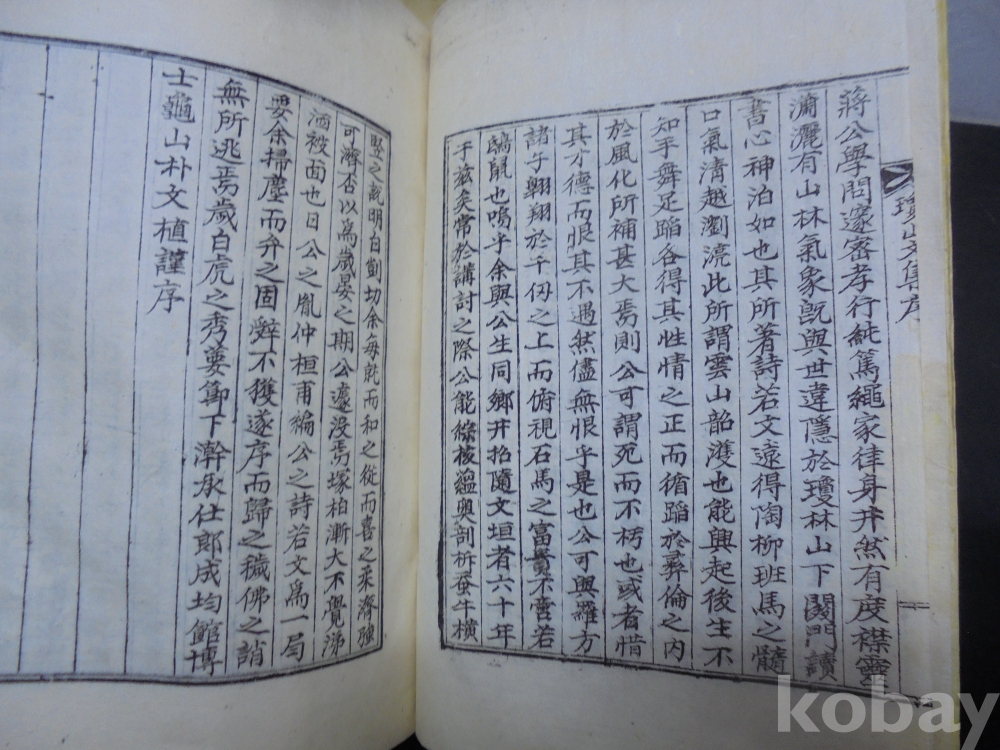 瓊山文集序
蔣公學問邃密孝行純篤繩家律身井然有度襟靈
瀟灑有山林氣象旣與世違隱於瓊林山下閉門讀
書心神泊如也其所著詩若文遠得陶柳班馬之髓
口氣淸越瀏湸此所謂雲山韶濩也能興起後生不
知手舞足蹈各得其性情之正而循蹈於彛倫之內
於風化所補甚大焉則公可謂死而不朽也或者惜
其才德而恨其不遇然儘無恨乎是也公可與羅方
諸子翱翔於千仞之上而俯視石馬之富貴不啻若
鴟鼠也嗚乎余與公生同鄕井招隨文垣者六十年
于玆矣常於講討之際公能條核蘊奧剖析蚕牛橫
竪之說明白剴切余每乾而和之從而喜之采濟強
可濟否以爲歲晏之期公遽沒焉塚柏漸大不覺涕
洒被面也日公之胤仲桓甫編公之詩若文爲一局
要余掃塵而弁之固辭不獲遂序而歸之穢佛之誚
無所逃焉歲白虎之秀葽節下澣承仕郞成均館博
士龜山朴文植謹序
kobay